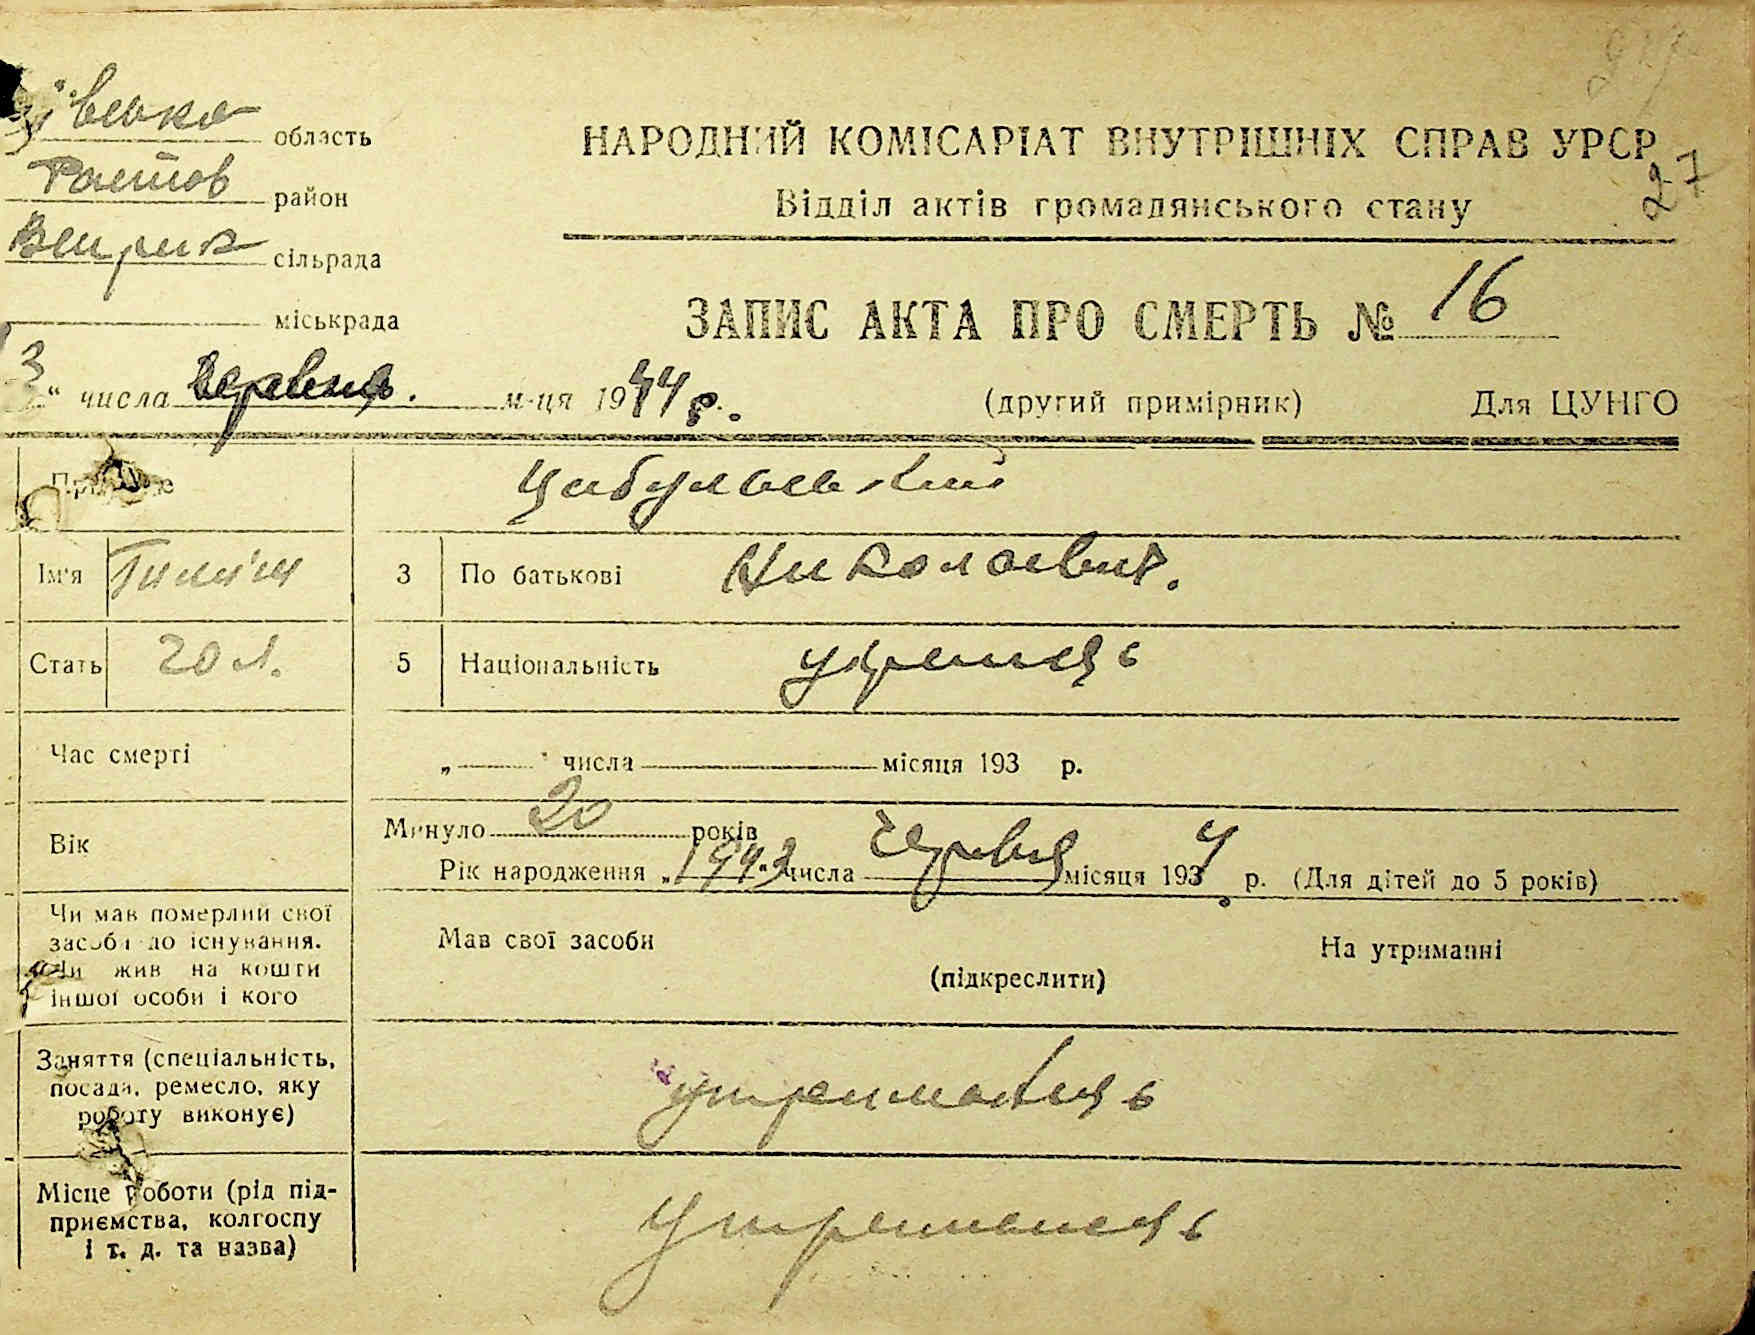 область
район
Веприк сільрада
міськрада
27
НАРОДНИЙ КОМІСАРІАТ ВНУТРІШНІХ СПРАВ УРСР
Відділ актів громадянського стану
ЗАПИС АКТА ПРО СМЕРТЬ № 16
3 " числа Червня. м-ця 1944 р.
(другий примірник) Для ЦУНГО
Цибульський
Ім'я
3 По батькові Николаевич.
Стать 20 л.
5 Національність
Час смерті „ " числа місяця 193 р.
Вік
Минуло 20 років
Рік народження „ 1943 " числа Червня місяця 1934 р. (Для дітей до 5 років)
Чи мав померлий свої
засоби до існування.
Чи жив на кошти
іншої особи і кого
Мав свої засоби
На утриманні
(підкреслити)
Заняття (спеціальність,
посада, ремесло, яку
роботу виконує)
утриманець
Місце роботи (рід під-
приємства, колгоспу
і т. д. та назва)
утриманець